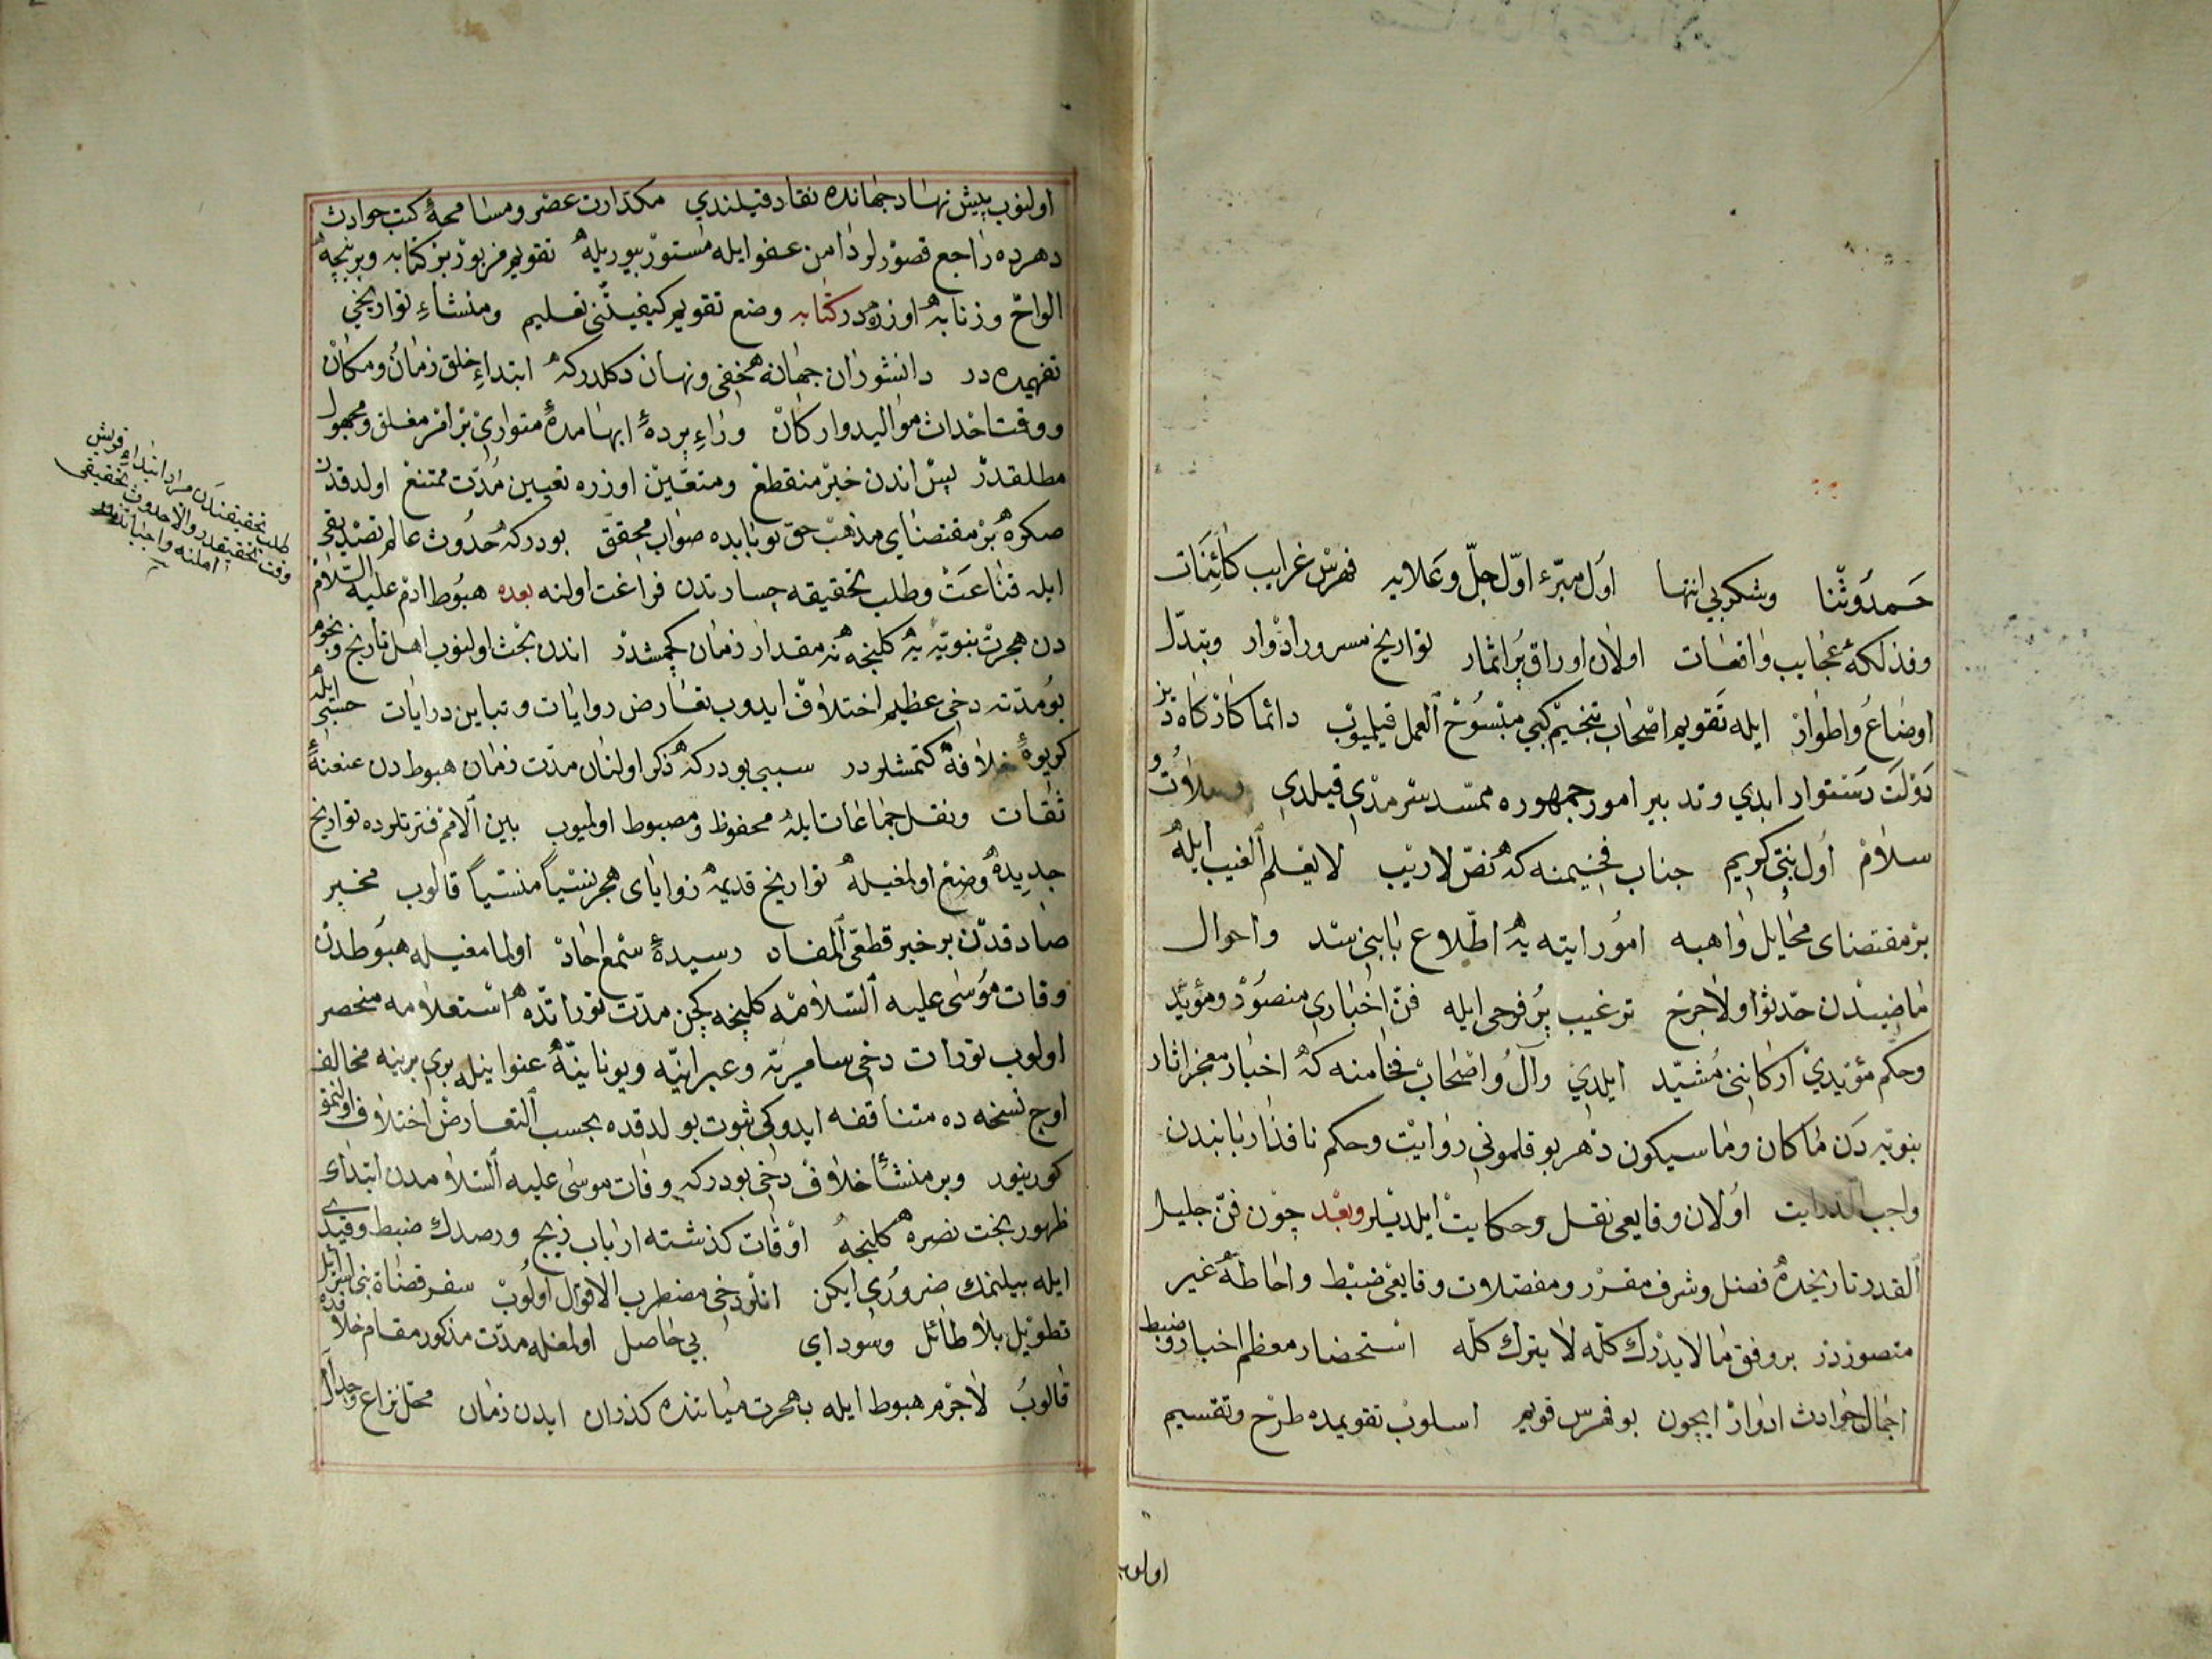 حمد وثنا وشكر بی انتها اول مبرء اول جل وعلایه فهرس غرایب كائنات
وفذلكهٔ عجایب واقعات اولان اوراق پر اثمار تواریخ مسرور ادوار وتبدل
اوضاع واطوار ایله تقویم اصحاب تنجیم كبی منسوخ العمل قیلیوب دائما كارگاه
دولت دستوار ابدی وتدبیر امور جمهوره ممسد سرمدی قیلدی وصلاوت و
سلام اول نبی كریم جناب فخیمنه كه نص لاریب لا یعلم الغیب ایله
بر مقتضای مخایل واهبه امور ایته یه اطلاع بابنی سد واحوال
ماضیدن حدثوا ولا حرج ترغیب پر فرحی ایله فن اخباری منصور ومؤید
وحكم مؤیدی اركاننی مشید ایلدی وآل واصحاب فخامنه كه اخبار معجز اثار
نبویه دن ما كان وما سیكون دهر بوقلمونی روایت وحكم نافذ اربابندن
واجب الدرایت اولان وقایعی نقل وحكایت ایلدیلر وبعد چون فن جلیل
القدر تاریخده فضل وشرف مقرر ومفصلات وقایعی ضبط واحاطه غیر
متصوردر بر وفق ما لا یدرك كله لا یترك كله استحضار معظم اخبار وضبط
اجمال حوادث ادوار ایچون بو فهرس قویم اسلوب تقویمده طرح وتقسیم
اولنوب
اولنوب پیش نهاد جهانده نقاد قیلندی مكدارت عصر ومسامحهٔ كتب حوادث
دهرده راجع قصورلر دامن عفو ایله مستور بیوریله تقویم مزبور بر كتابه وبر نیچه
الواح وزنابه اوزره در كتابه وضع تقویم كیفیتنی تعلیم ومنشاء تواریخی
تفهیمده در دانشوران جهانه مخفی ونهان دكلدركه ابتداء خلق زمان ومكان
ووقت احداث موالید واركان وراء پردهٔ ابهامده متواری بر امر مغلق ومجهول
مطلقدر پس اندن خبر منقطع ومتعین اوزره تعیین مدت ممتنع اولدقدن
صكره بر مقتضای مذهب حق بو بابده صواب محقق بودركه حدوث عالم تصدیقی
ایله قناعت وطلب تحقیقه جسارتدن فراغت اولنه بعده هبوط ادم علیه السلام
دن هجرت نبویه یه كلنجه نه مقدار زمان كچمشدر اندن بحث اولنوب اهل تاریخ ونجوم
بو مدتده دخی عظیم اختلاف ایدوب تعارض روایات وتباین درایات حسبی ایله
كریوهٔ خلافه كتمشلردر سببی بودركه ذكر اولنان مدت زمان هبوطدن عنعنهٔ
ثقات ونقل جماعات ایله محفوظ ومضبوط اولمیوب بین الامم فترتلرده تواریخ
جدیده وضع اولمغیله تواریخ قدیمه زوایای هجر نسیا منسیا قالوب مخبر
صادقدن بر خبر قطعی المفاد رسیدهٔ سمع احاد اولمامغیله هبوطدن
وفات موسی علیه السلامه كلنجه كچن مدت توراتده استعلامه منحصر
اولوب تورات دخی سامریه وعبرانیه ویونانیه عنوانیله بری برینه مخالف
اوچ نسخه ده متناقضه ایدوكی ثبوت بولدقده بحسب التعارض اختلاف اولنمق
كورینور وبر منشأ خلاف دخی بودركه وفات موسی علیه السلامدن ابتدای
ظهور بخت نصره كلنجه اوقات كذشته ارباب زیج ورصدك ضبط وقیدی
ایله بیلنمك ضروری ایكن انلر دخی مضطرب الاقوال اولوب سفر قضاة بنی اسرائیل
تطویل بلا طائل وسودای بی حاصل اولمغله مدت مذكور مقام خلافده
قالوب لاجرم هبوط ایله هجرت میاننده كذران ایدن زمان محل نزاع وجدال
طلب تحقیقندن مراد ابتداء افرینش
وقت تحقیقیدر والا حدوث تحقیقی